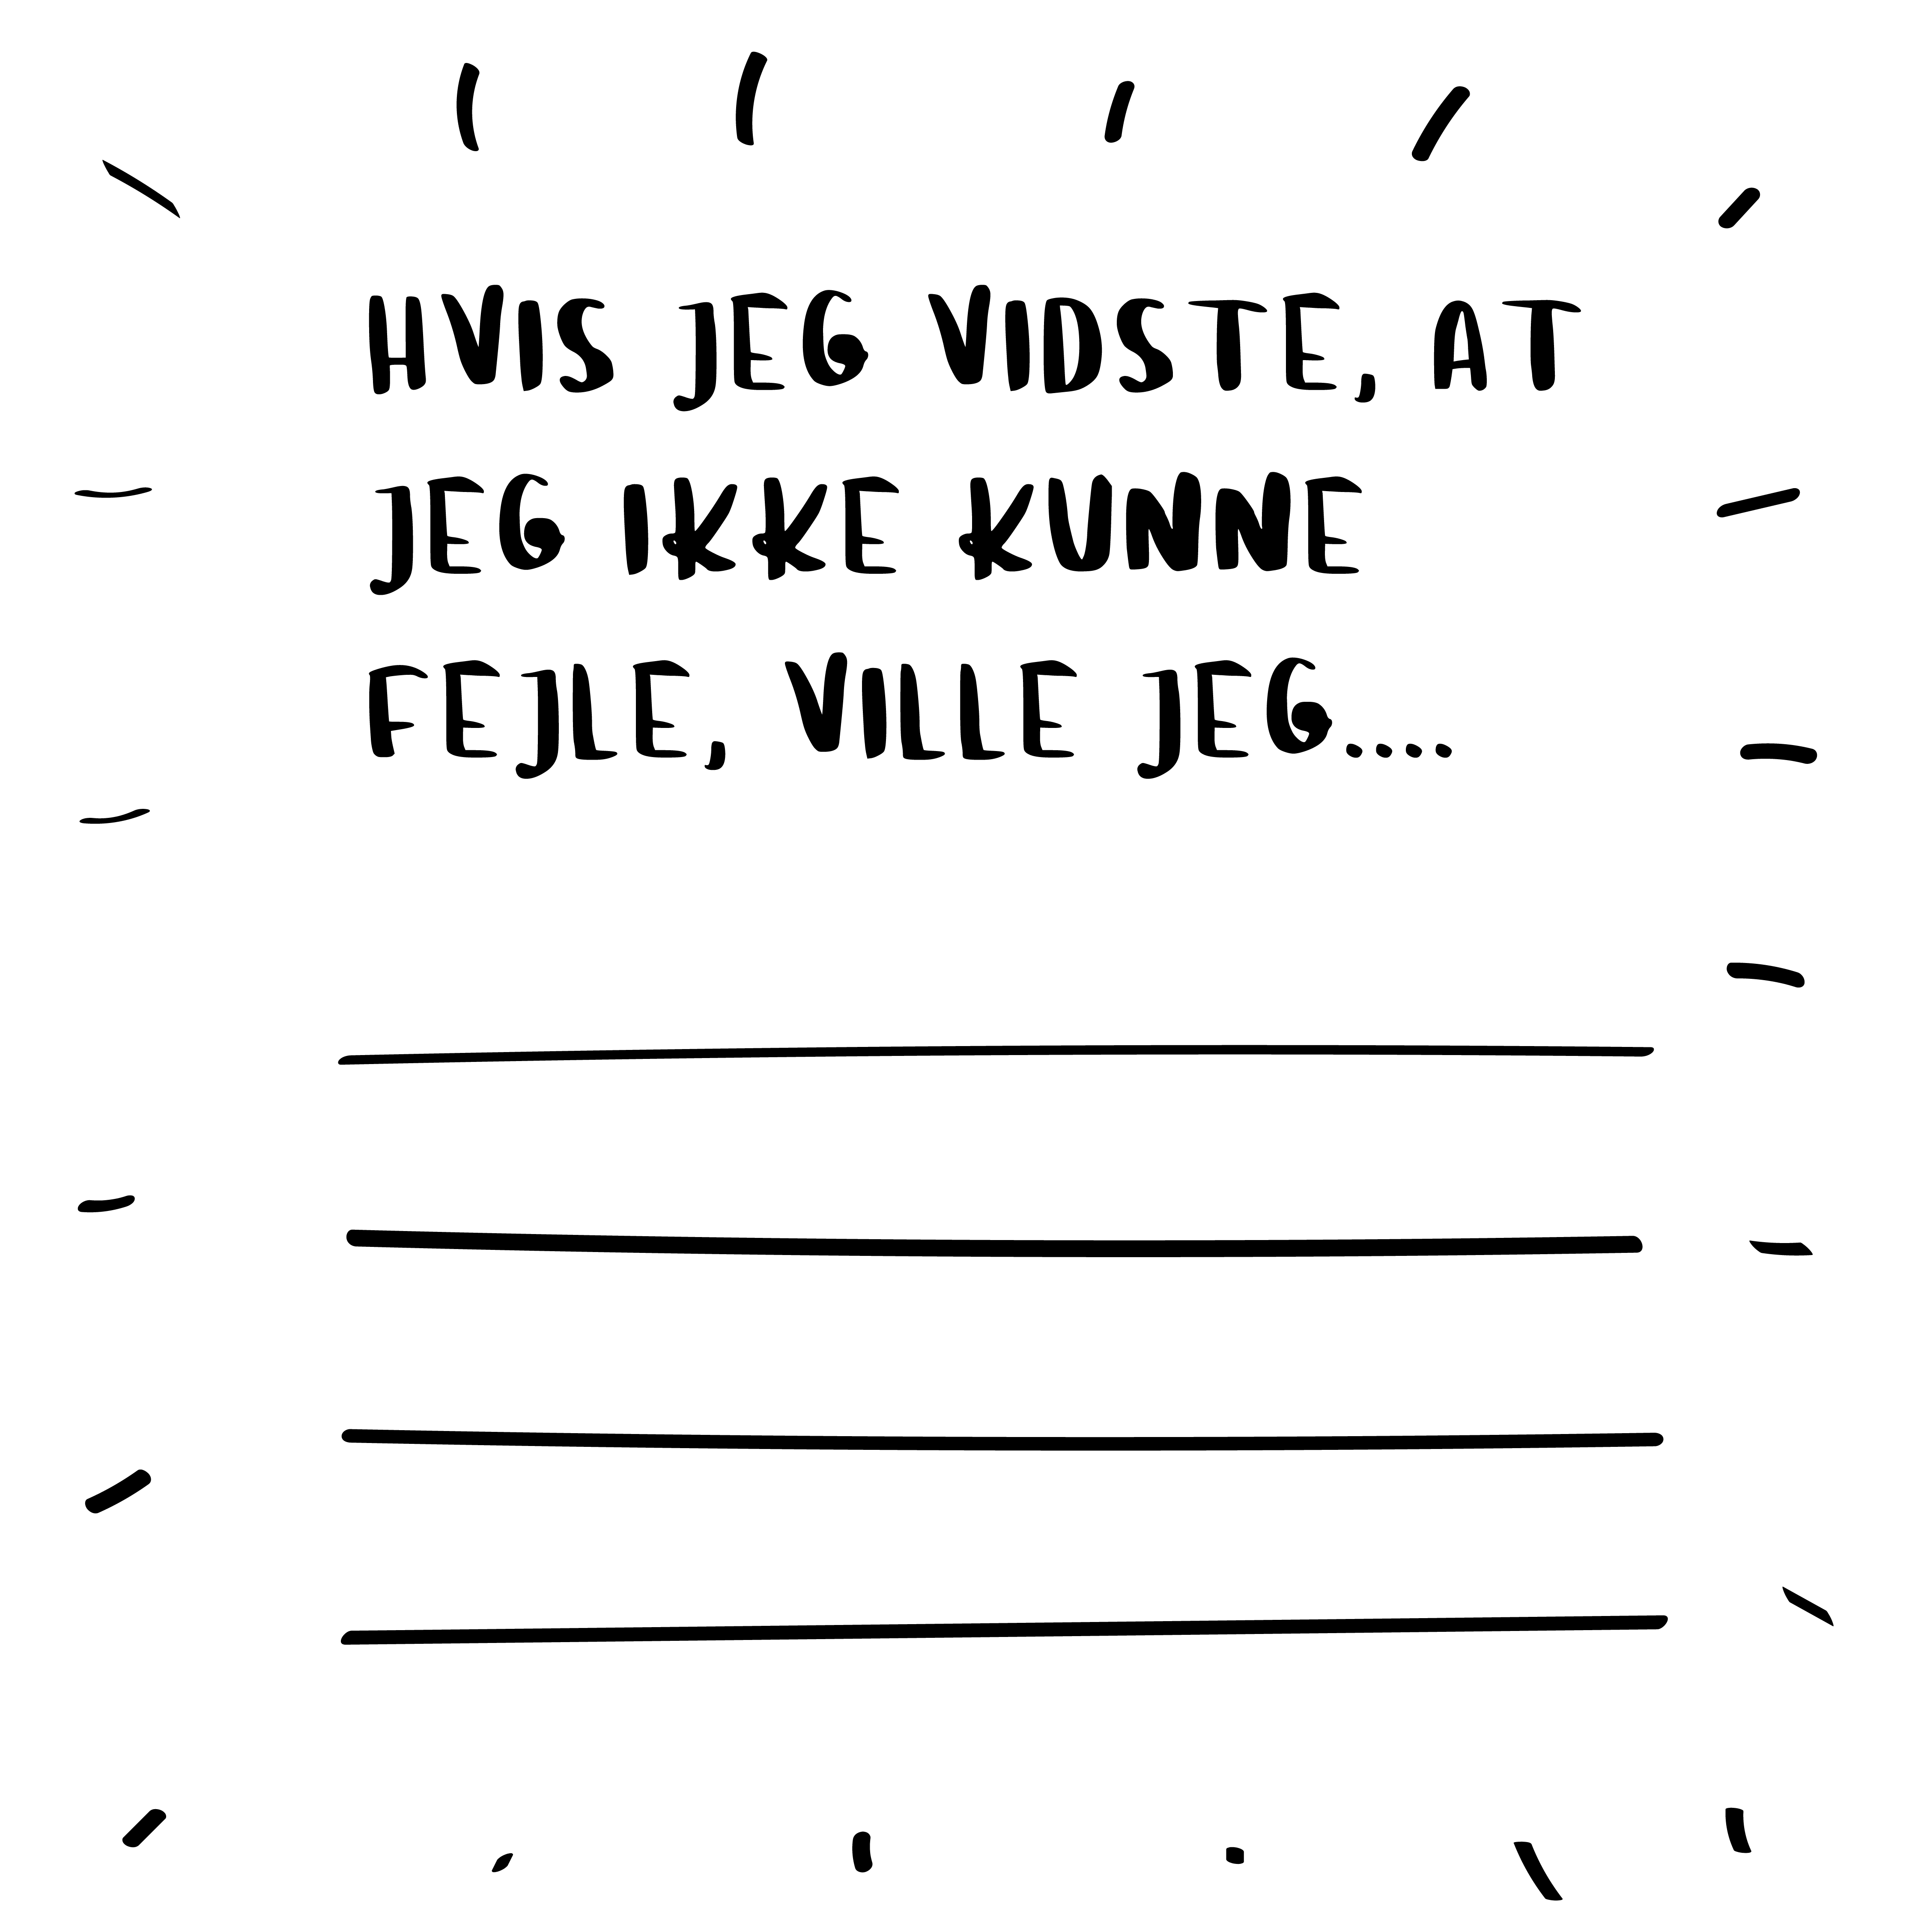 HVIS JEG VIDSTE, AT
JEG IKKE KUNNE
FEJLE, VILLE JEG....